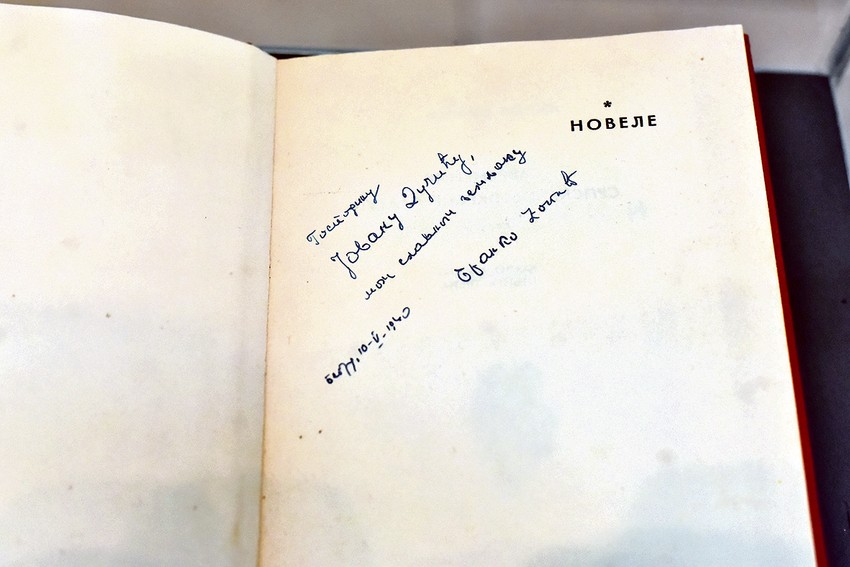 *
НОВЕЛЕ
Господину
Јовану Дучићу,
мом славном земљаку
Бранко Ћопић
Беогр, 10-V-1940